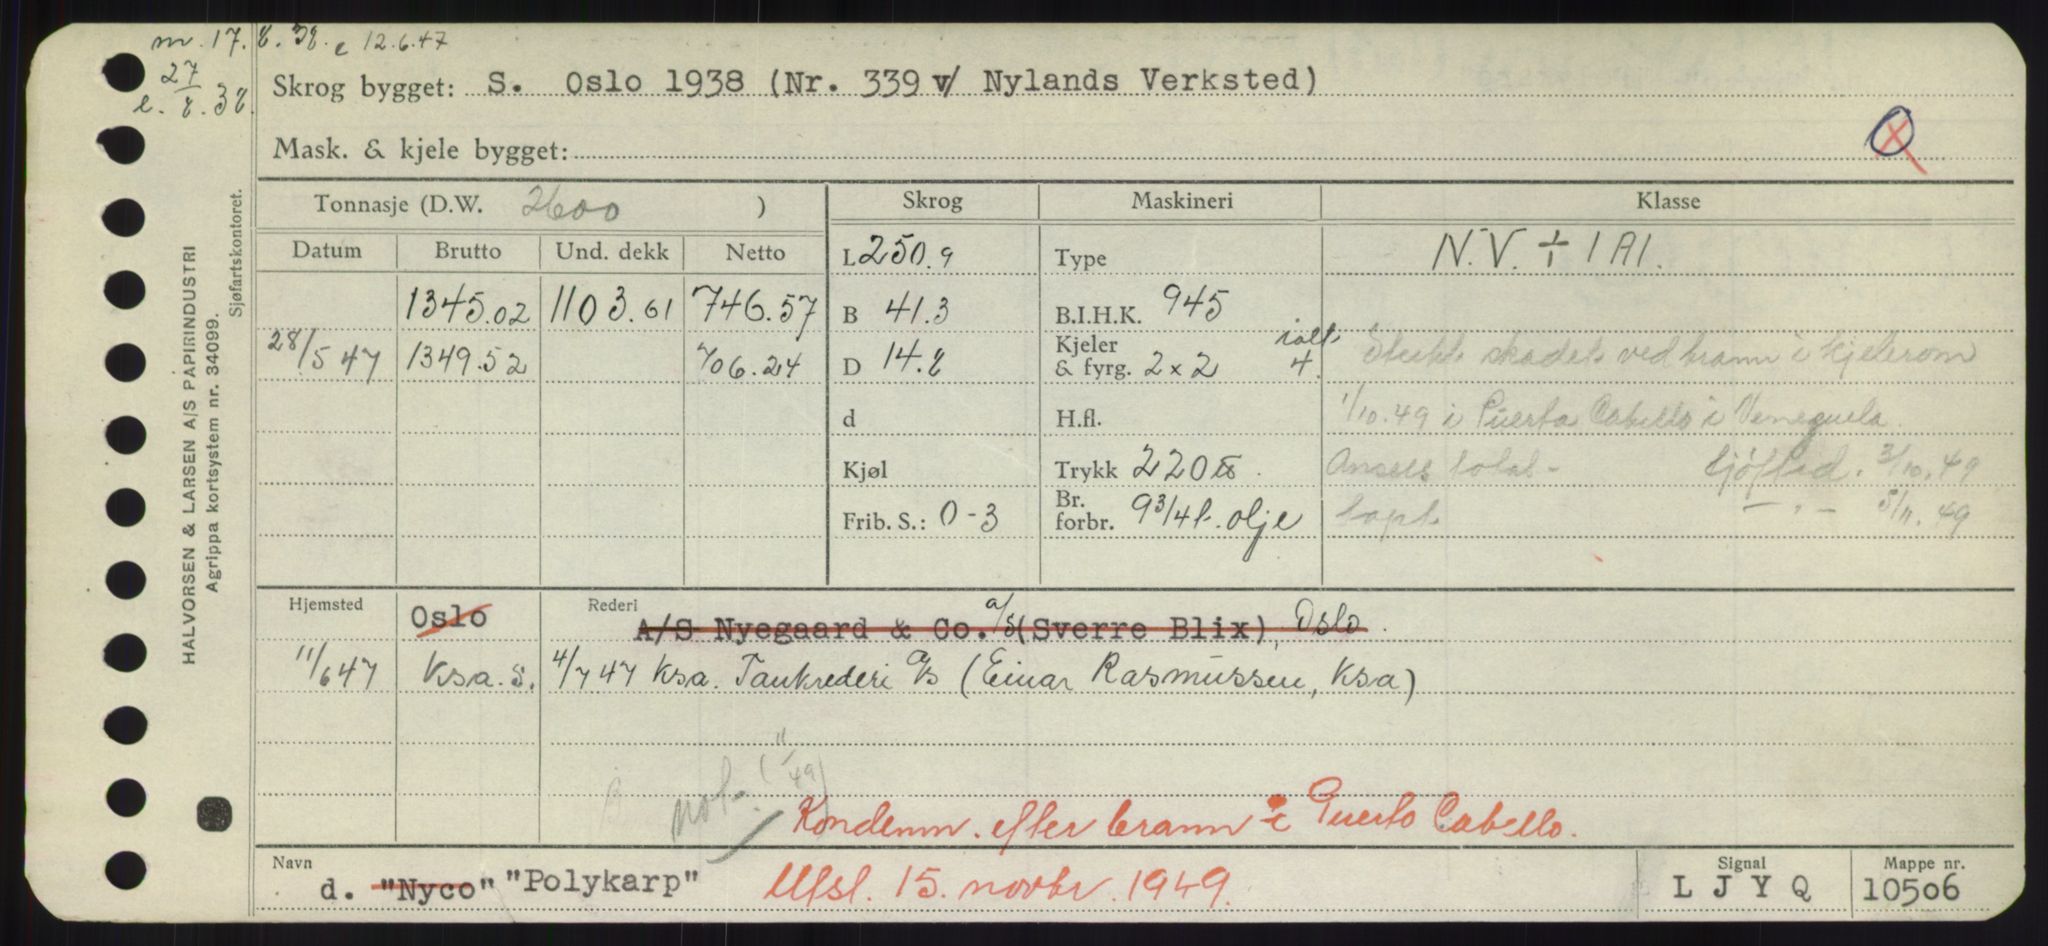 m. 17. 8. 38. e 12.6.47
27
e. 8. 38.
Skrog bygget: S. Oslo 1938 (Nr. 339 v/ Nylands Verksted)
Mask. & kjele bygget:
HALVORSEN & LARSEN A/S PAPIRINDUSTRI
Agrippa kortsystem nr. 34099.
Sjøfartskontoret.
Tonnasje (D.W. 2600 ) Skrog Maskineri Klasse
Datum Brutto Und. dekk Netto L 250.9 Type N.V. + 1A1.
1345.02 1103.61 746.57 B 41.3 B.I.H.K. 945
28/5 47 1349.52 706.24 D 14.8 Kjeler & fyrg. 2 x 2 ialt 4. Sterkt skadet ved brann i kjelerom
d H.fl. 1/10.49 i Puerta Cabello i Venezuela.
Kjøl Trykk 220 lb. Ansees total- Sjøftid. 3/10.49
Frib. S.: 0-3 Br. forbr. 9 3/4 t. olje tapt - " - 5/11.49
Hjemsted Oslo Rederi A/S Nyegaard & Co. a/s (Sverre Blix), Oslo.
11/6 47 Ksa. S. 4/7 47 Ksa. Tankrederi A/S (Einar Rasmussen, Ksa)
not. (11/49)
Kondemn. efter brann i Puerto Cabello.
Navn d. "Nyco" "Polykarp" Utsl. 15. novbr. 1949. Signal L J Y Q Mappe nr. 10506